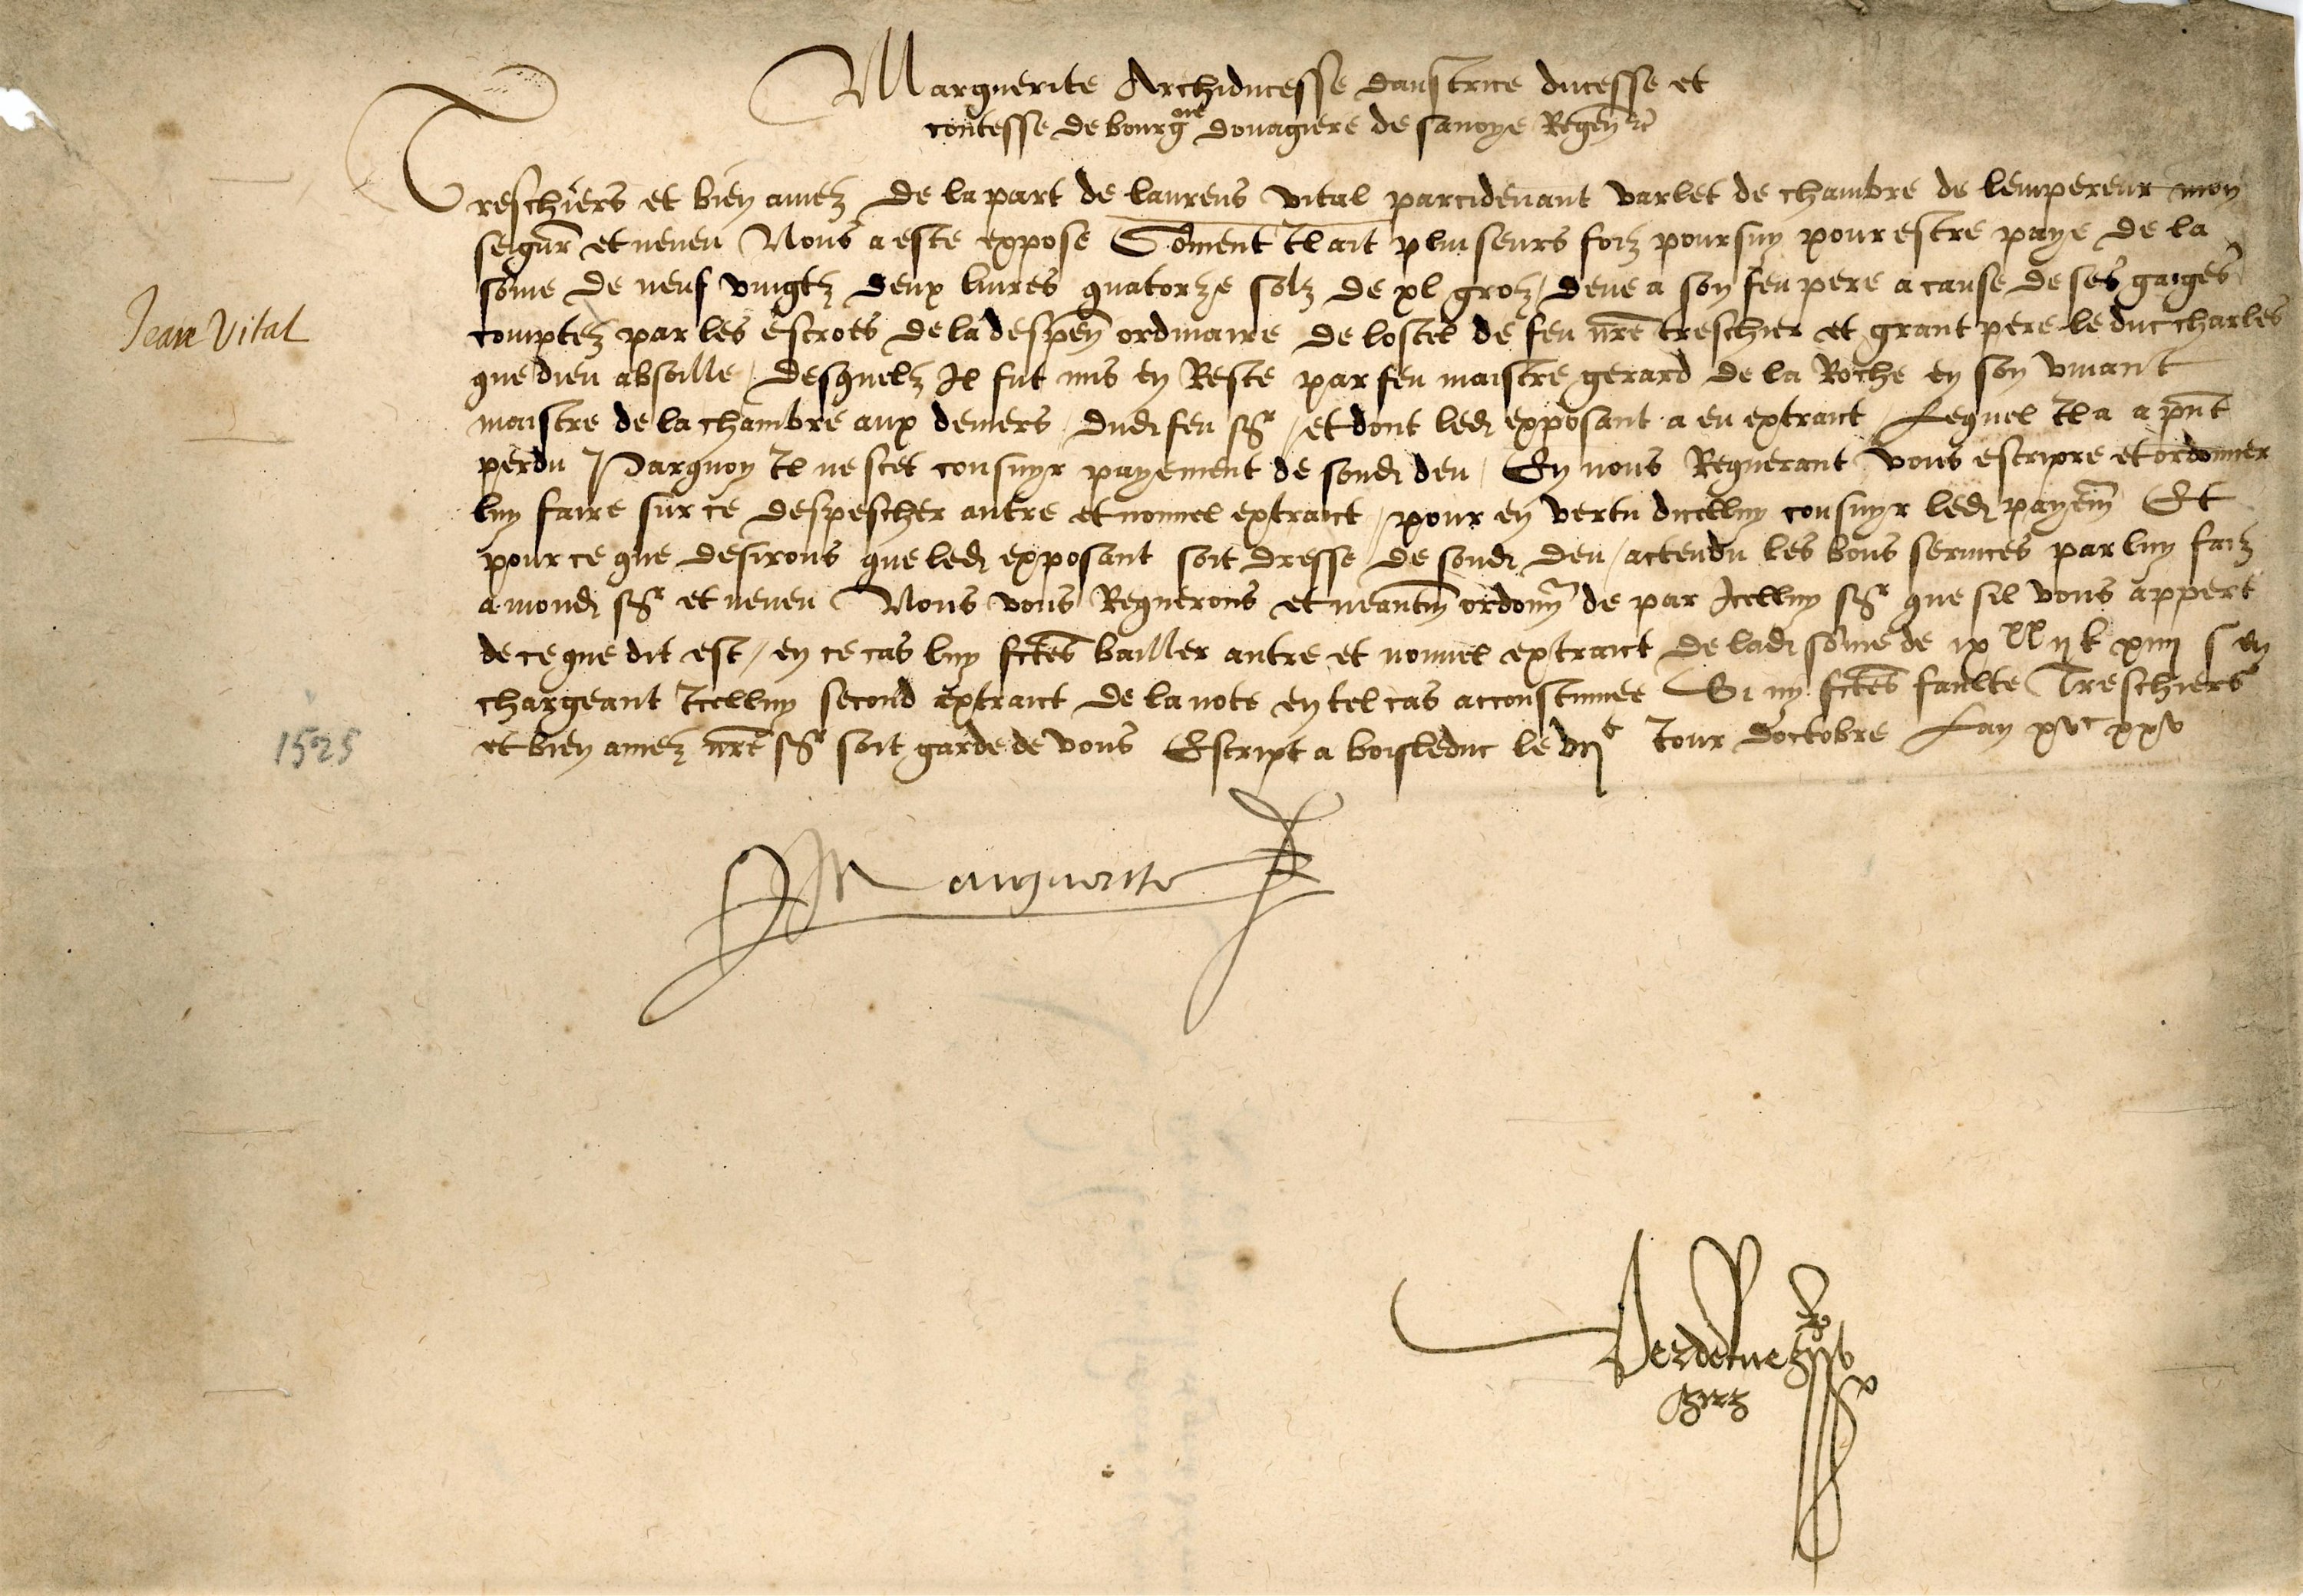 Marguerite Archiducesse daustrice ducesse et
contesse de bourgne douagiere de sauoye Regen rc
Treschiers et bien amez De la part de laurens vital parcideuant varlet de chambre de lempereur mon
segnr et neueu Nous a este expose Comment Il ait pluiseurs foiz poursuy pour estre paye de la
some de neuf vingtz deux liures quatorze solz de xl groz / deue a son feu pere a cause de ses gaiges
Jean Vital
comptez par les escroes de la despen ordinaire de lostel de feu nre treschier et grant pere le duc charles
que dieu absoille / desquelz Il fut mis en Reste par feu maistre gerard de la Roche en son viuant
maistre de la chambre aux deniers dud feu sgr / et dont led exposant a eu extraict Lequel Il a a pnt
perdu Parquoy Il ne scet consuyr payement de sond deu / En nous Requerant vous escripre et ordonner
luy faire sur ce despescher autre et nouuel extraict / pour en vertu dicelluy consuyr led payem Et
pour ce que desirons que led exposant soit dresse de sond deu / actendu les bons seruices par luy faiz
a mond sgr et neueu Nous vous Requerons et neantm ordonn de par Icelluy sgr que sil vous appert
de ce que dit est / en ce cas luy fctes bailler autre et nouuel extraict de lad some de ix xx ij l xiiij s en
chargeant Icelluy second extraict de la note en tel cas accoustumee Si ny fctes faulte Treschiers
et bien amez nre sgr soit garde de vous Escript a boisleduc le vije Jour doctobre Lan xvc xxv
1525
Marguerite